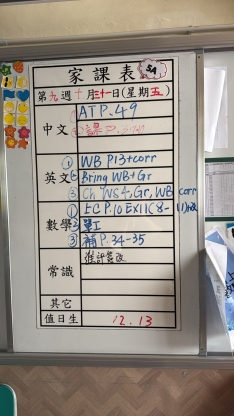 家課表 5A
第九週十月三十一日(星期五)
中文
ATP.49
英文
① WB P13+corr
② Bring WB+Gr
③ Ch WS4, Gr, WB corr
數學
① EC P.10 EX11(8-11)
② 單工
③ 補 P.34-35
常識
其它
值日生 12.13